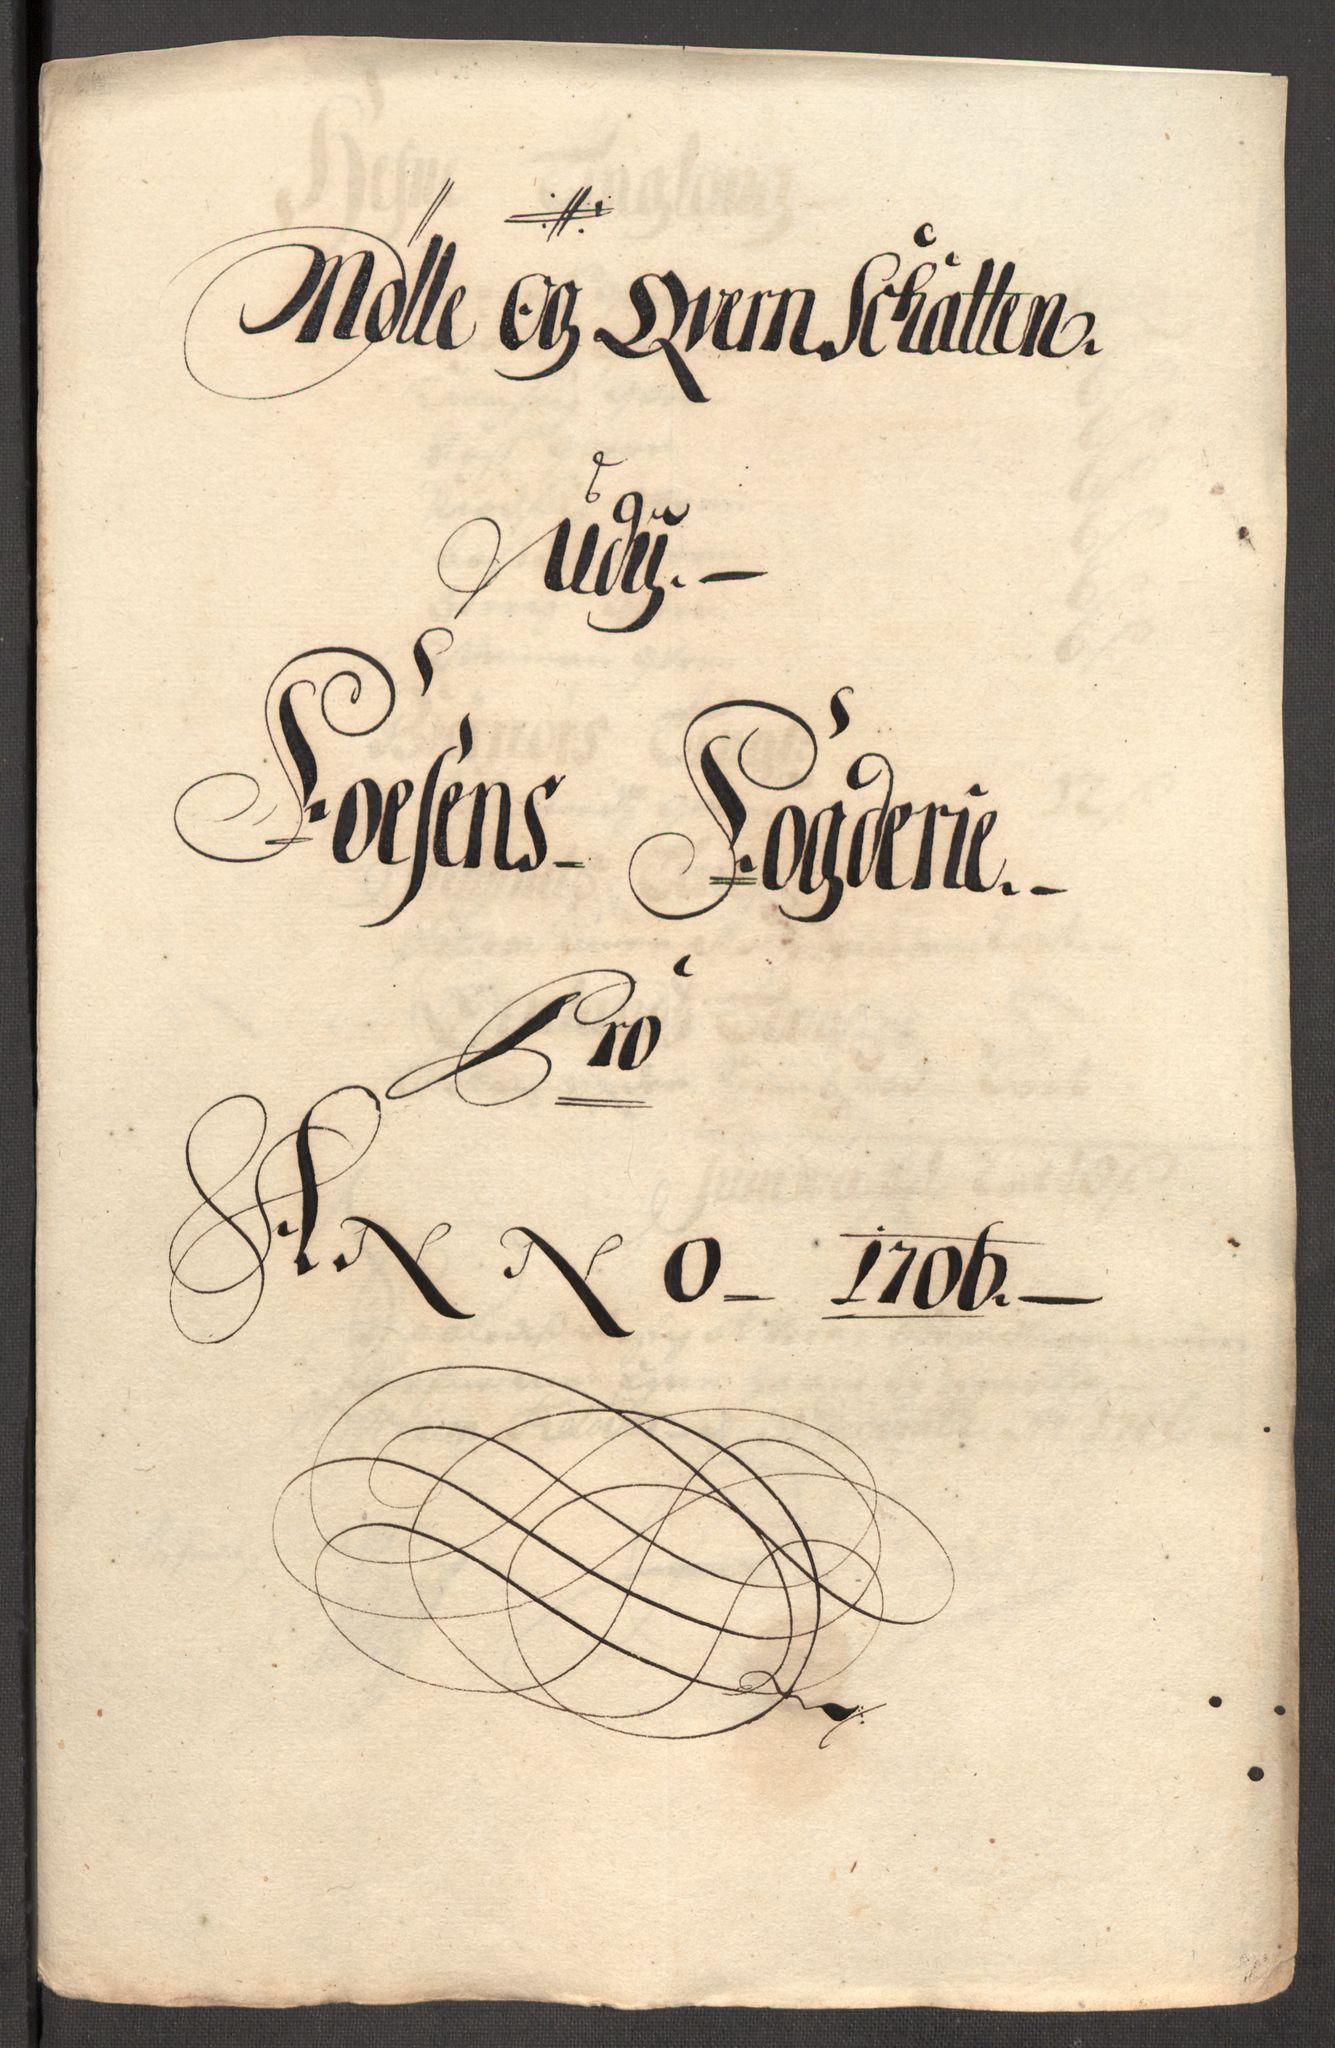 Mølle Og Qvern Schatten.
Udÿ.
Foesens Fogderie.
Pro
ANNO 1706.